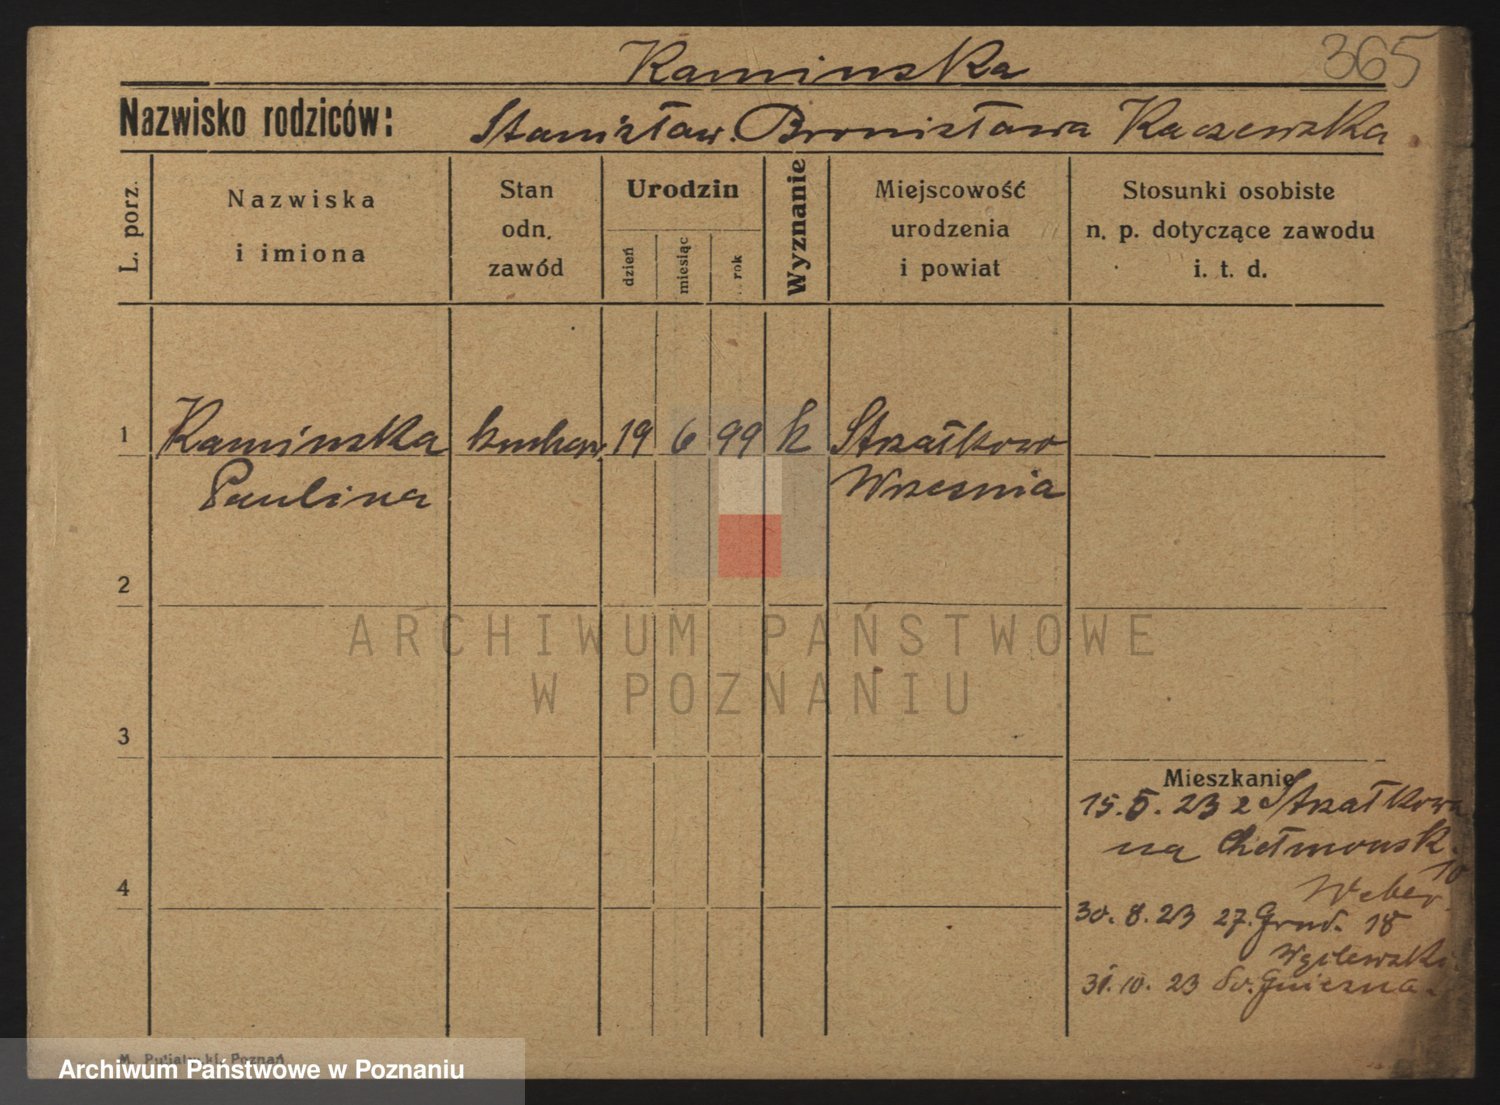 365
Kaminska
Nazwisko rodziców: Stanisław. Bronisława Kaczewska
L. porz.
Nazwiska
i imiona
Stan
odn.
zawód
Urodzin
dzień
miesiąc
rok
Wyznanie
Miejscowość
urodzenia
i powiat
Stosunki osobiste
n. p. dotyczące zawodu
i. t. d.
1 Kaminska 19 6 99 k Strzałkowo
Paulina Wrzesnia
2
3
4
Mieszkanie
15.5.23 z Strzałkowa
na Chełmonsk. 10
Weber.
30.8.23 27. Grud. 18
31.10.23 do. Gniezna.
ARCHIWUM PAŃSTWOWE
W POZNANIU
Poznań
Archiwum Państwowe w Poznaniu